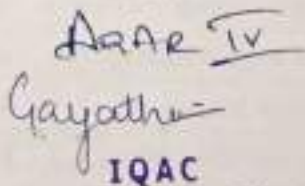 AQAR IV
Gayathri
IQAC